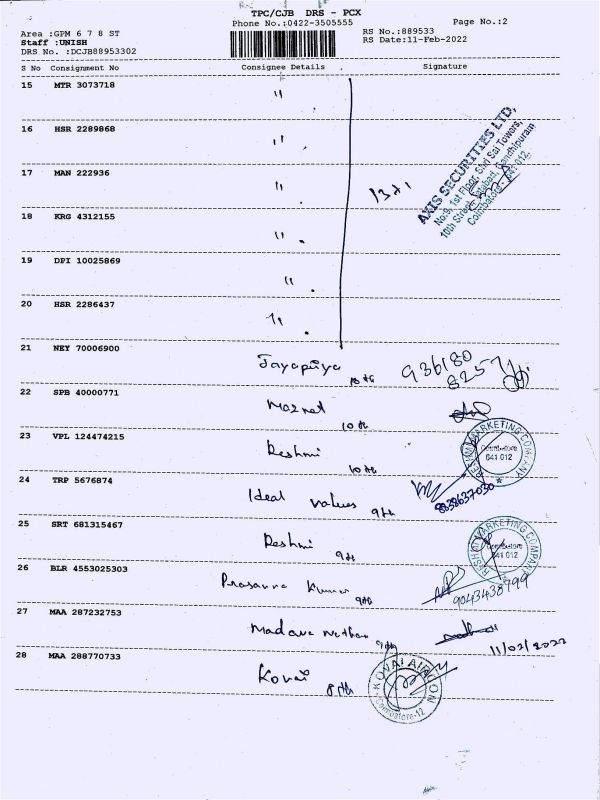 TPC/CJB DRS - PCX
Phone No.:0422-3505555 Page No.:2
Area :GPM 6 7 8 ST RS No.:889533
Staff :UNISH RS Date:11-Feb-2022
DRS No. :DCJB88953302
S No Consignment No Consignee Details Signature
15 MTR 3073718 "
16 HSR 2289868 "
AXIS SECURITIES LTD,
No:9, 1st Floor, Shri Sai Towers,
10th Street, Tatabad, Gandhipuram
Coimbatore - 641 012.
17 MAN 222936 "
18 KRG 4312155 "
19 DPI 10025869 "
20 HSR 2286437 "
21 NEY 70006900 Jayapriya 10th 936180
8257
22 SPB 40000771 Maznet 10th
23 VPL 124474215 Reshmi 10th
RESHMI MARKETING COMPANY
Coimbatore
641 012
24 TRP 5676874 Ideal values 9th 9838637030
25 SRT 681315467 Reshmi 9th
RESHMI MARKETING COMPANY
Coimbatore
641 012
26 BLR 4553025303 Prasanna Kumar 9th 9043438799
27 MAA 287232753 9th
11/02/2022
28 MAA 288770733 Kovai 8th
KOVAI AIRCON
Coimbatore-12